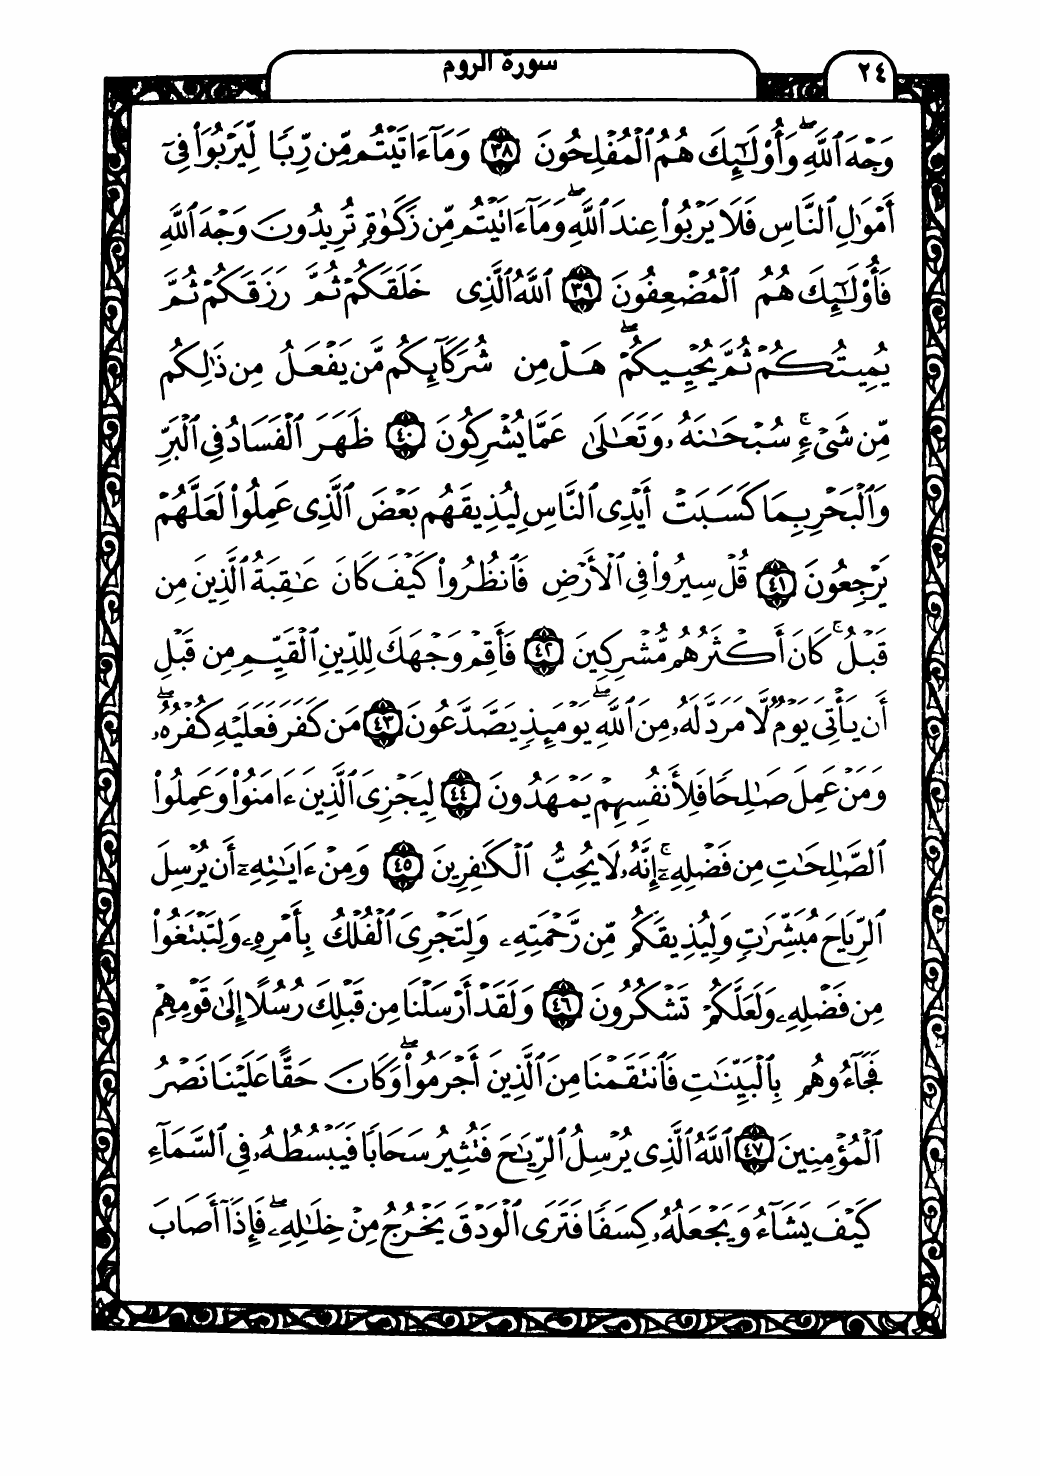 ٢٤
سورة الروم
وَجْهَ ٱللَّهِۖ وَأُو۟لَٰٓئِكَ هُمُ ٱلْمُفْلِحُونَ ٣٨ وَمَآ ءَاتَيْتُم مِّن رِّبًا لِّيَرْبُوَا۟ فِىٓ
أَمْوَٰلِ ٱلنَّاسِ فَلَا يَرْبُوا۟ عِندَ ٱللَّهِۖ وَمَآ ءَاتَيْتُم مِّن زَكَوٰةٍ تُرِيدُونَ وَجْهَ ٱللَّهِ
فَأُو۟لَٰٓئِكَ هُمُ ٱلْمُضْعِفُونَ ٣٩ ٱللَّهُ ٱلَّذِى خَلَقَكُمْ ثُمَّ رَزَقَكُمْ ثُمَّ
يُمِيتُكُمْ ثُمَّ يُحْيِيكُمْۖ هَلْ مِن شُرَكَآئِكُم مَّن يَفْعَلُ مِن ذَٰلِكُم
مِّن شَىْءٍۚ سُبْحَٰنَهُۥ وَتَعَٰلَىٰ عَمَّا يُشْرِكُونَ ٤٠ ظَهَرَ ٱلْفَسَادُ فِى ٱلْبَرِّ
وَٱلْبَحْرِ بِمَا كَسَبَتْ أَيْدِى ٱلنَّاسِ لِيُذِيقَهُم بَعْضَ ٱلَّذِى عَمِلُوا۟ لَعَلَّهُمْ
يَرْجِعُونَ ٤١ قُلْ سِيرُوا۟ فِى ٱلْأَرْضِ فَٱنظُرُوا۟ كَيْفَ كَانَ عَٰقِبَةُ ٱلَّذِينَ مِن
قَبْلُۚ كَانَ أَكْثَرُهُم مُّشْرِكِينَ ٤٢ فَأَقِمْ وَجْهَكَ لِلدِّينِ ٱلْقَيِّمِ مِن قَبْلِ
أَن يَأْتِىَ يَوْمٌ لَّا مَرَدَّ لَهُۥ مِنَ ٱللَّهِۖ يَوْمَئِذٍ يَصَّدَّعُونَ ٤٣ مَن كَفَرَ فَعَلَيْهِ كُفْرُهُۥۖ
وَمَنْ عَمِلَ صَٰلِحًا فَلِأَنفُسِهِمْ يَمْهَدُونَ ٤٤ لِيَجْزِىَ ٱلَّذِينَ ءَامَنُوا۟ وَعَمِلُوا۟
ٱلصَّٰلِحَٰتِ مِن فَضْلِهِۦٓۚ إِنَّهُۥ لَا يُحِبُّ ٱلْكَٰفِرِينَ ٤٥ وَمِنْ ءَايَٰتِهِۦٓ أَن يُرْسِلَ
ٱلرِّيَاحَ مُبَشِّرَٰتٍ وَلِيُذِيقَكُم مِّن رَّحْمَتِهِۦ وَلِتَجْرِىَ ٱلْفُلْكُ بِأَمْرِهِۦ وَلِتَبْتَغُوا۟
مِن فَضْلِهِۦ وَلَعَلَّكُمْ تَشْكُرُونَ ٤٦ وَلَقَدْ أَرْسَلْنَا مِن قَبْلِكَ رُسُلًا إِلَىٰ قَوْمِهِمْ
فَجَآءُوهُم بِٱلْبَيِّنَٰتِ فَٱنتَقَمْنَا مِنَ ٱلَّذِينَ أَجْرَمُوا۟ۖ وَكَانَ حَقًّا عَلَيْنَا نَصْرُ
ٱلْمُؤْمِنِينَ ٤٧ ٱللَّهُ ٱلَّذِى يُرْسِلُ ٱلرِّيَٰحَ فَتُثِيرُ سَحَابًا فَيَبْسُطُهُۥ فِى ٱلسَّمَآءِ
كَيْفَ يَشَآءُ وَيَجْعَلُهُۥ كِسَفًا فَتَرَى ٱلْوَدْقَ يَخْرُجُ مِنْ خِلَٰلِهِۦۖ فَإِذَآ أَصَابَ